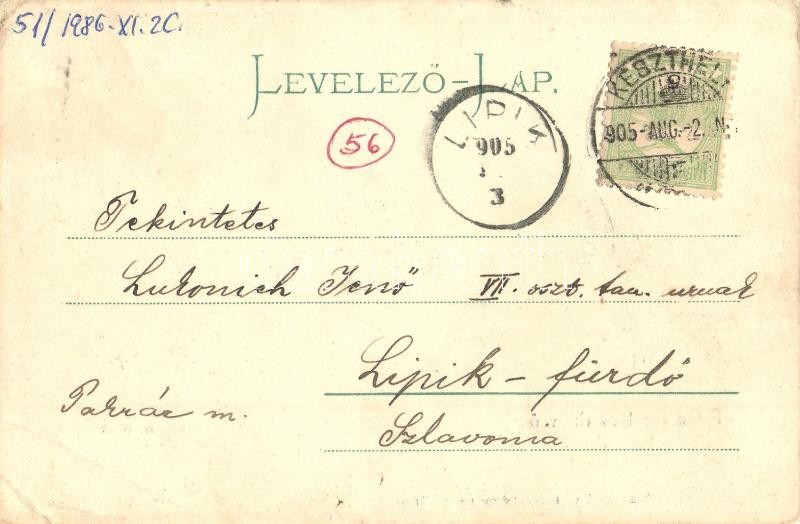 51/1986.XI.20.
LEVELEZŐ-LAP.
KESZTHELY
905-AUG.-2. N
LIPIK
905
3
56
Tekintetes
Lukonich Jenő VII. oszt. tan. urnak
Lipik-fürdő
Pakrác m.
Szlavonia